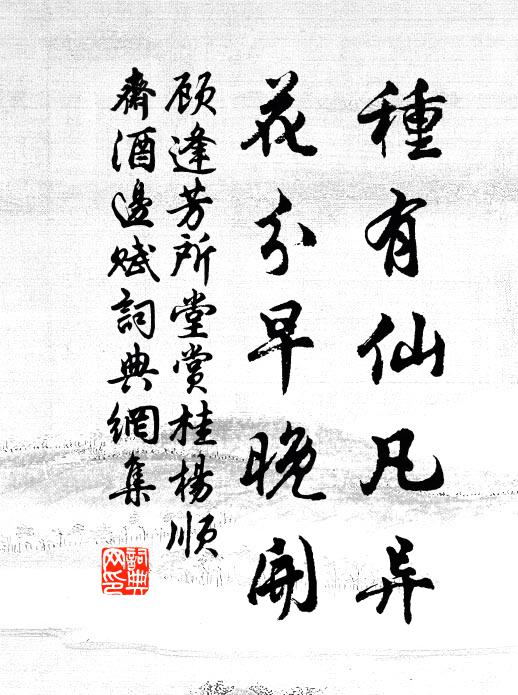 種有仙凡异
花分早晚開
顾逢芳所堂賞桂楊順
齋酒邊賦詞典網集
詞典网印